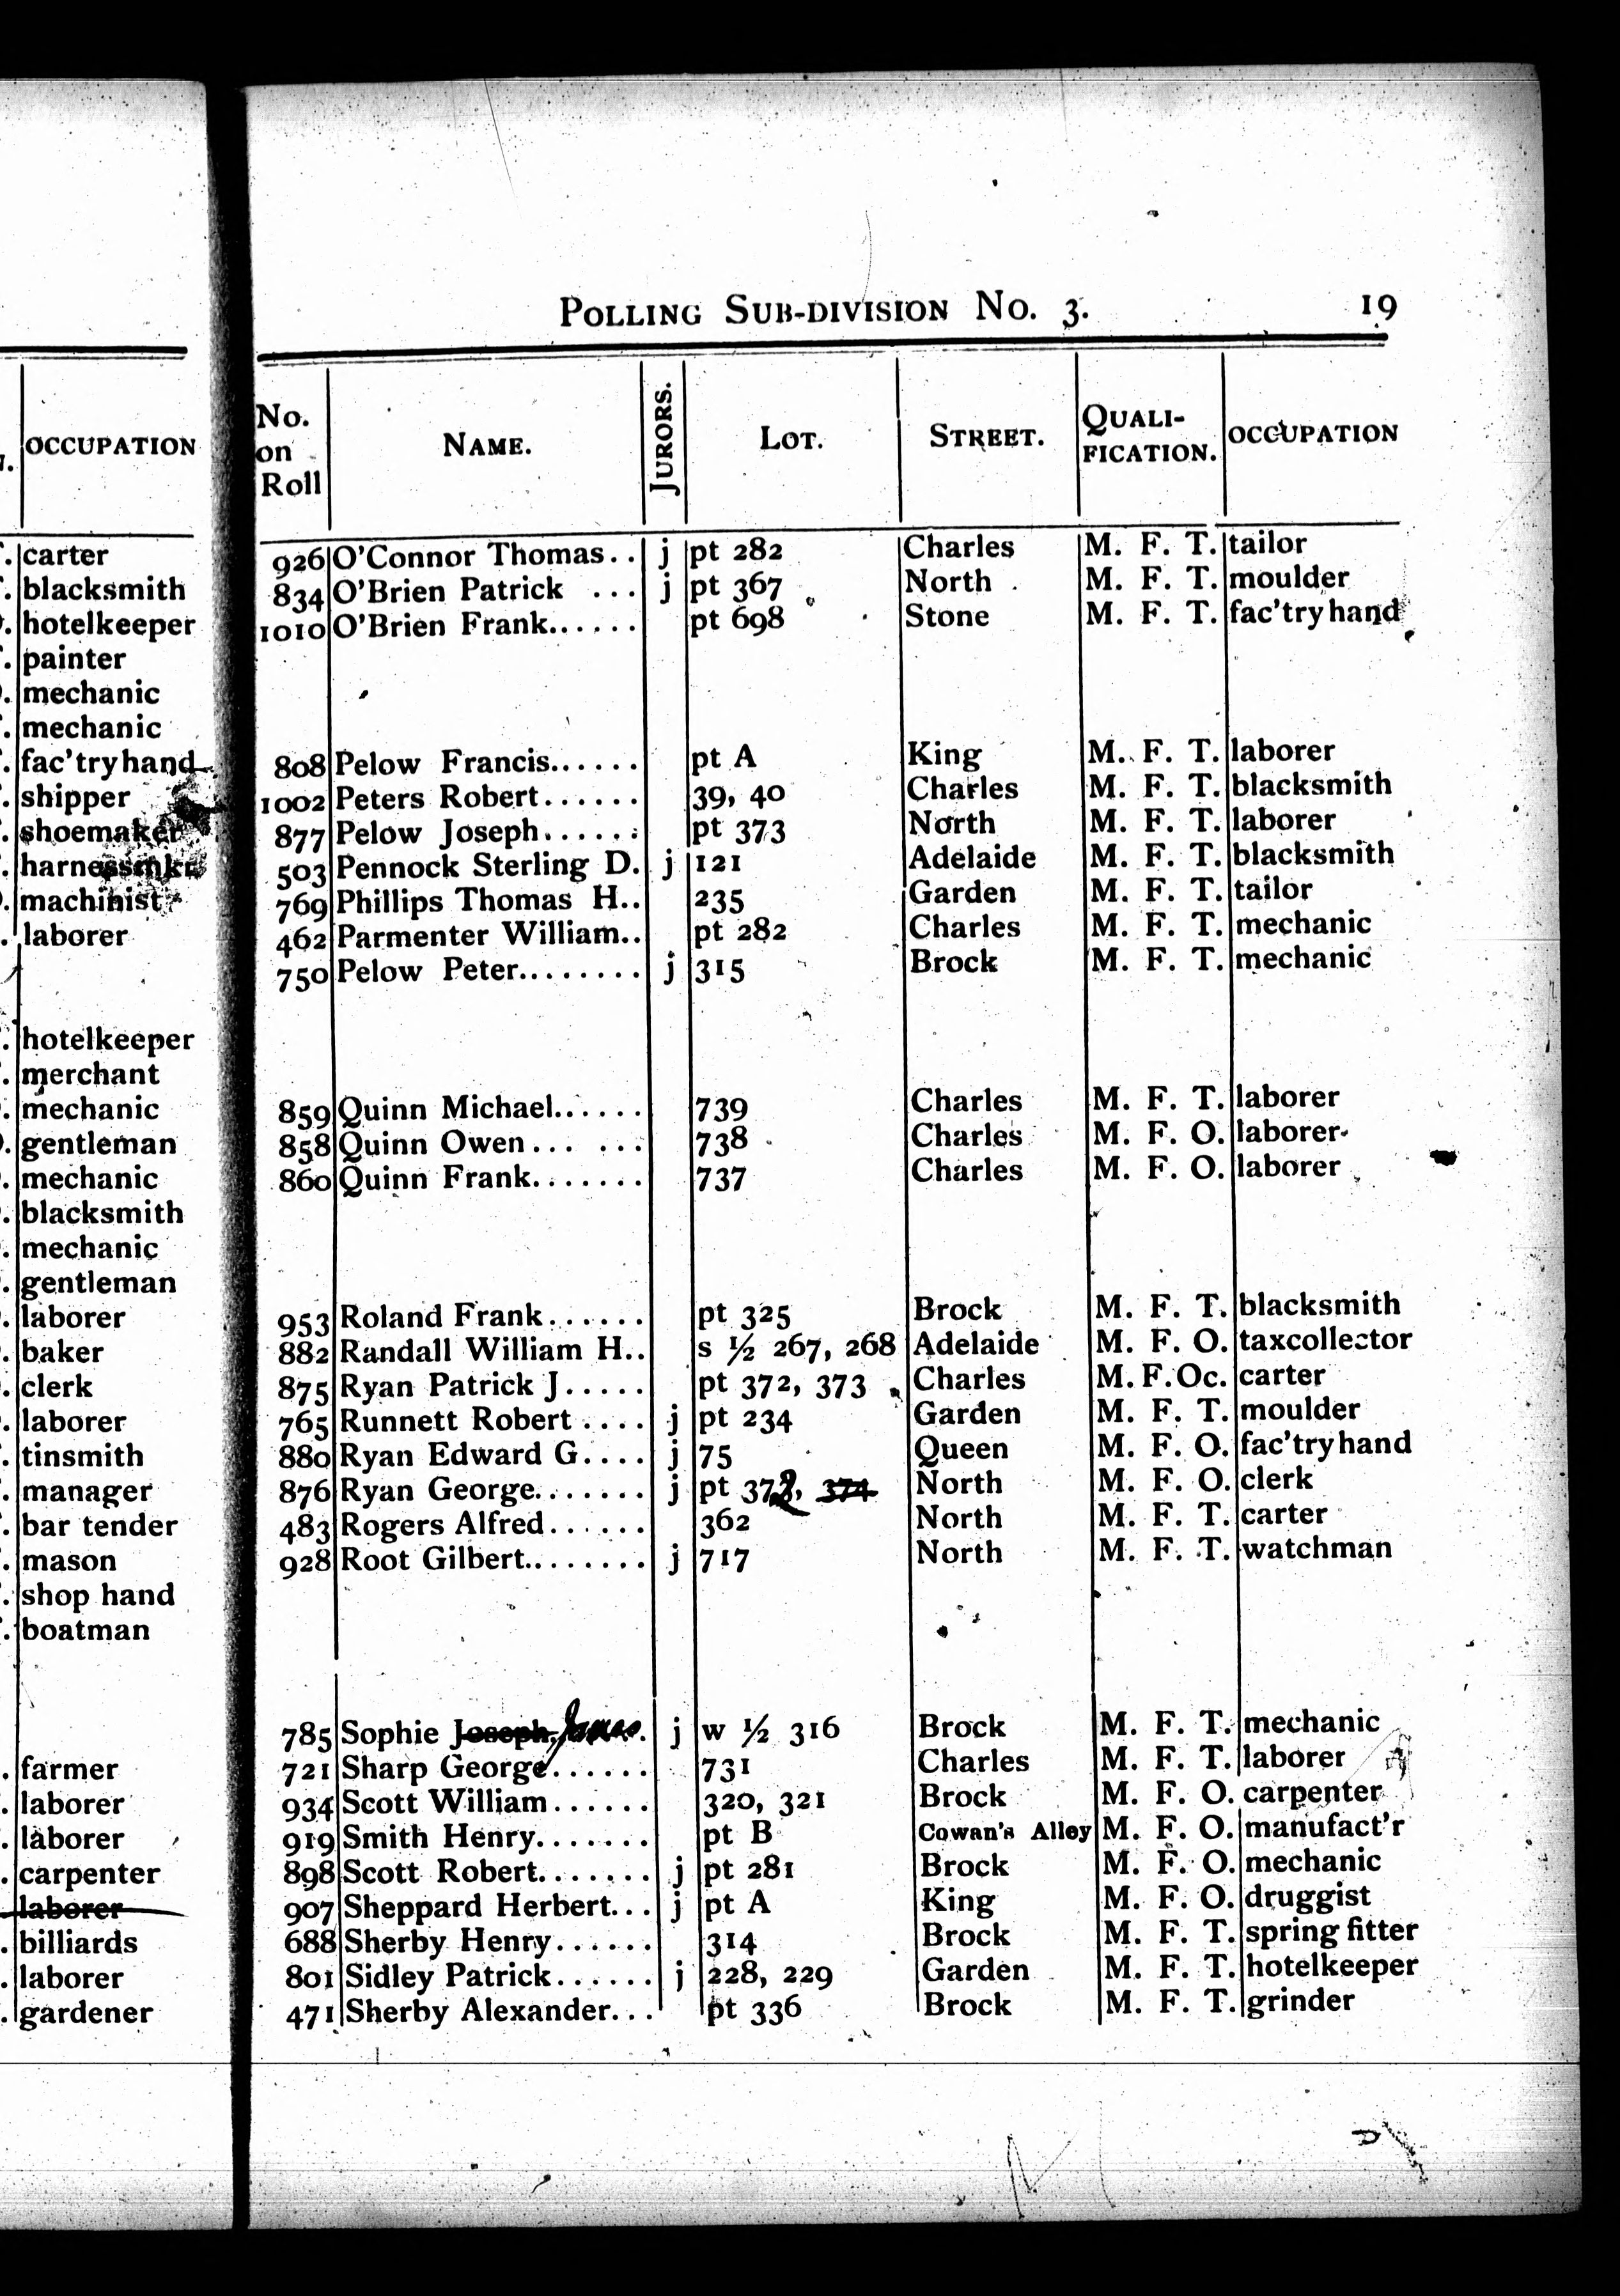 OCCUPATION
carter
blacksmith
hotelkeeper
painter
mechanic
mechanic
fac'try hand
shipper
shoemaker
harnessmkr
machinist
laborer
hotelkeeper
merchant
mechanic
gentleman
mechanic
blacksmith
mechanic
gentleman
laborer
baker
clerk
laborer
tinsmith
manager
bar tender
mason
shop hand
boatman
farmer
laborer
laborer
carpenter
laborer
billiards
laborer
gardener
POLLING SUB-DIVISION No. 3. 19
No. on Roll NAME. JURORS. LOT. STREET. QUALI-FICATION. OCCUPATION
926 O'Connor Thomas.. j pt 282 Charles M. F. T. tailor
834 O'Brien Patrick ... j pt 367 North M. F. T. moulder
1010 O'Brien Frank...... pt 698 Stone M. F. T. fac'try hand
808 Pelow Francis...... pt A King M. F. T. laborer
1002 Peters Robert...... 39, 40 Charles M. F. T. blacksmith
877 Pelow Joseph...... pt 373 North M. F. T. laborer
503 Pennock Sterling D. j 121 Adelaide M. F. T. blacksmith
769 Phillips Thomas H.. 235 Garden M. F. T. tailor
462 Parmenter William.. pt 282 Charles M. F. T. mechanic
750 Pelow Peter........ j 315 Brock M. F. T. mechanic
859 Quinn Michael...... 739 Charles M. F. T. laborer
858 Quinn Owen... ... 738 Charles M. F. O. laborer
860 Quinn Frank....... 737 Charles M. F. O. laborer
953 Roland Frank...... pt 325 Brock M. F. T. blacksmith
882 Randall William H.. s ½ 267, 268 Adelaide M. F. O. taxcollector
875 Ryan Patrick J..... pt 372, 373 Charles M. F. Oc. carter
765 Runnett Robert .... j pt 234 Garden M. F. T. moulder
880 Ryan Edward G.... j 75 Queen M. F. O. fac'try hand
876 Ryan George....... j pt 372, 374 North M. F. O. clerk
483 Rogers Alfred...... 362 North M. F. T. carter
928 Root Gilbert........ j 717 North M. F. T. watchman
785 Sophie Joseph. James. j w ½ 316 Brock M. F. T. mechanic
721 Sharp George...... 731 Charles M. F. T. laborer
934 Scott William...... 320, 321 Brock M. F. O. carpenter
919 Smith Henry....... pt B Cowan's Alley M. F. O. manufact'r
898 Scott Robert....... j pt 281 Brock M. F. O. mechanic
907 Sheppard Herbert... j pt A King M. F. O. druggist
688 Sherby Henry...... 314 Brock M. F. T. spring fitter
801 Sidley Patrick...... j 228, 229 Garden M. F. T. hotelkeeper
471 Sherby Alexander... pt 336 Brock M. F. T. grinder